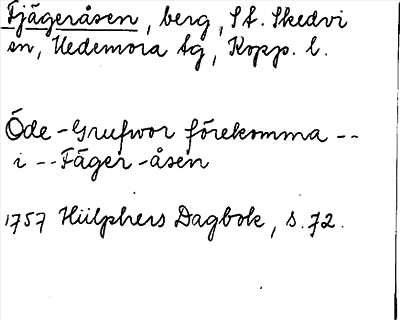 Fjägeråsen, berg, St. Skedvi
sn, Hedemora tg, Kopp. l.
Öde-Grufwor förekomma --
i -- Fäger-åsen
1757 Hülphers Dagbok, s. 72.